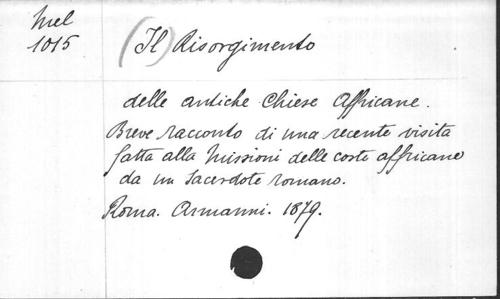 Mel
1015
(Il) Risorgimento
delle antiche Chiese Affricane.
Breve racconto di una recente visita
fatta alla Missioni delle coste affricane
da un Sacerdote romano.
Roma. Armanni. 1879.